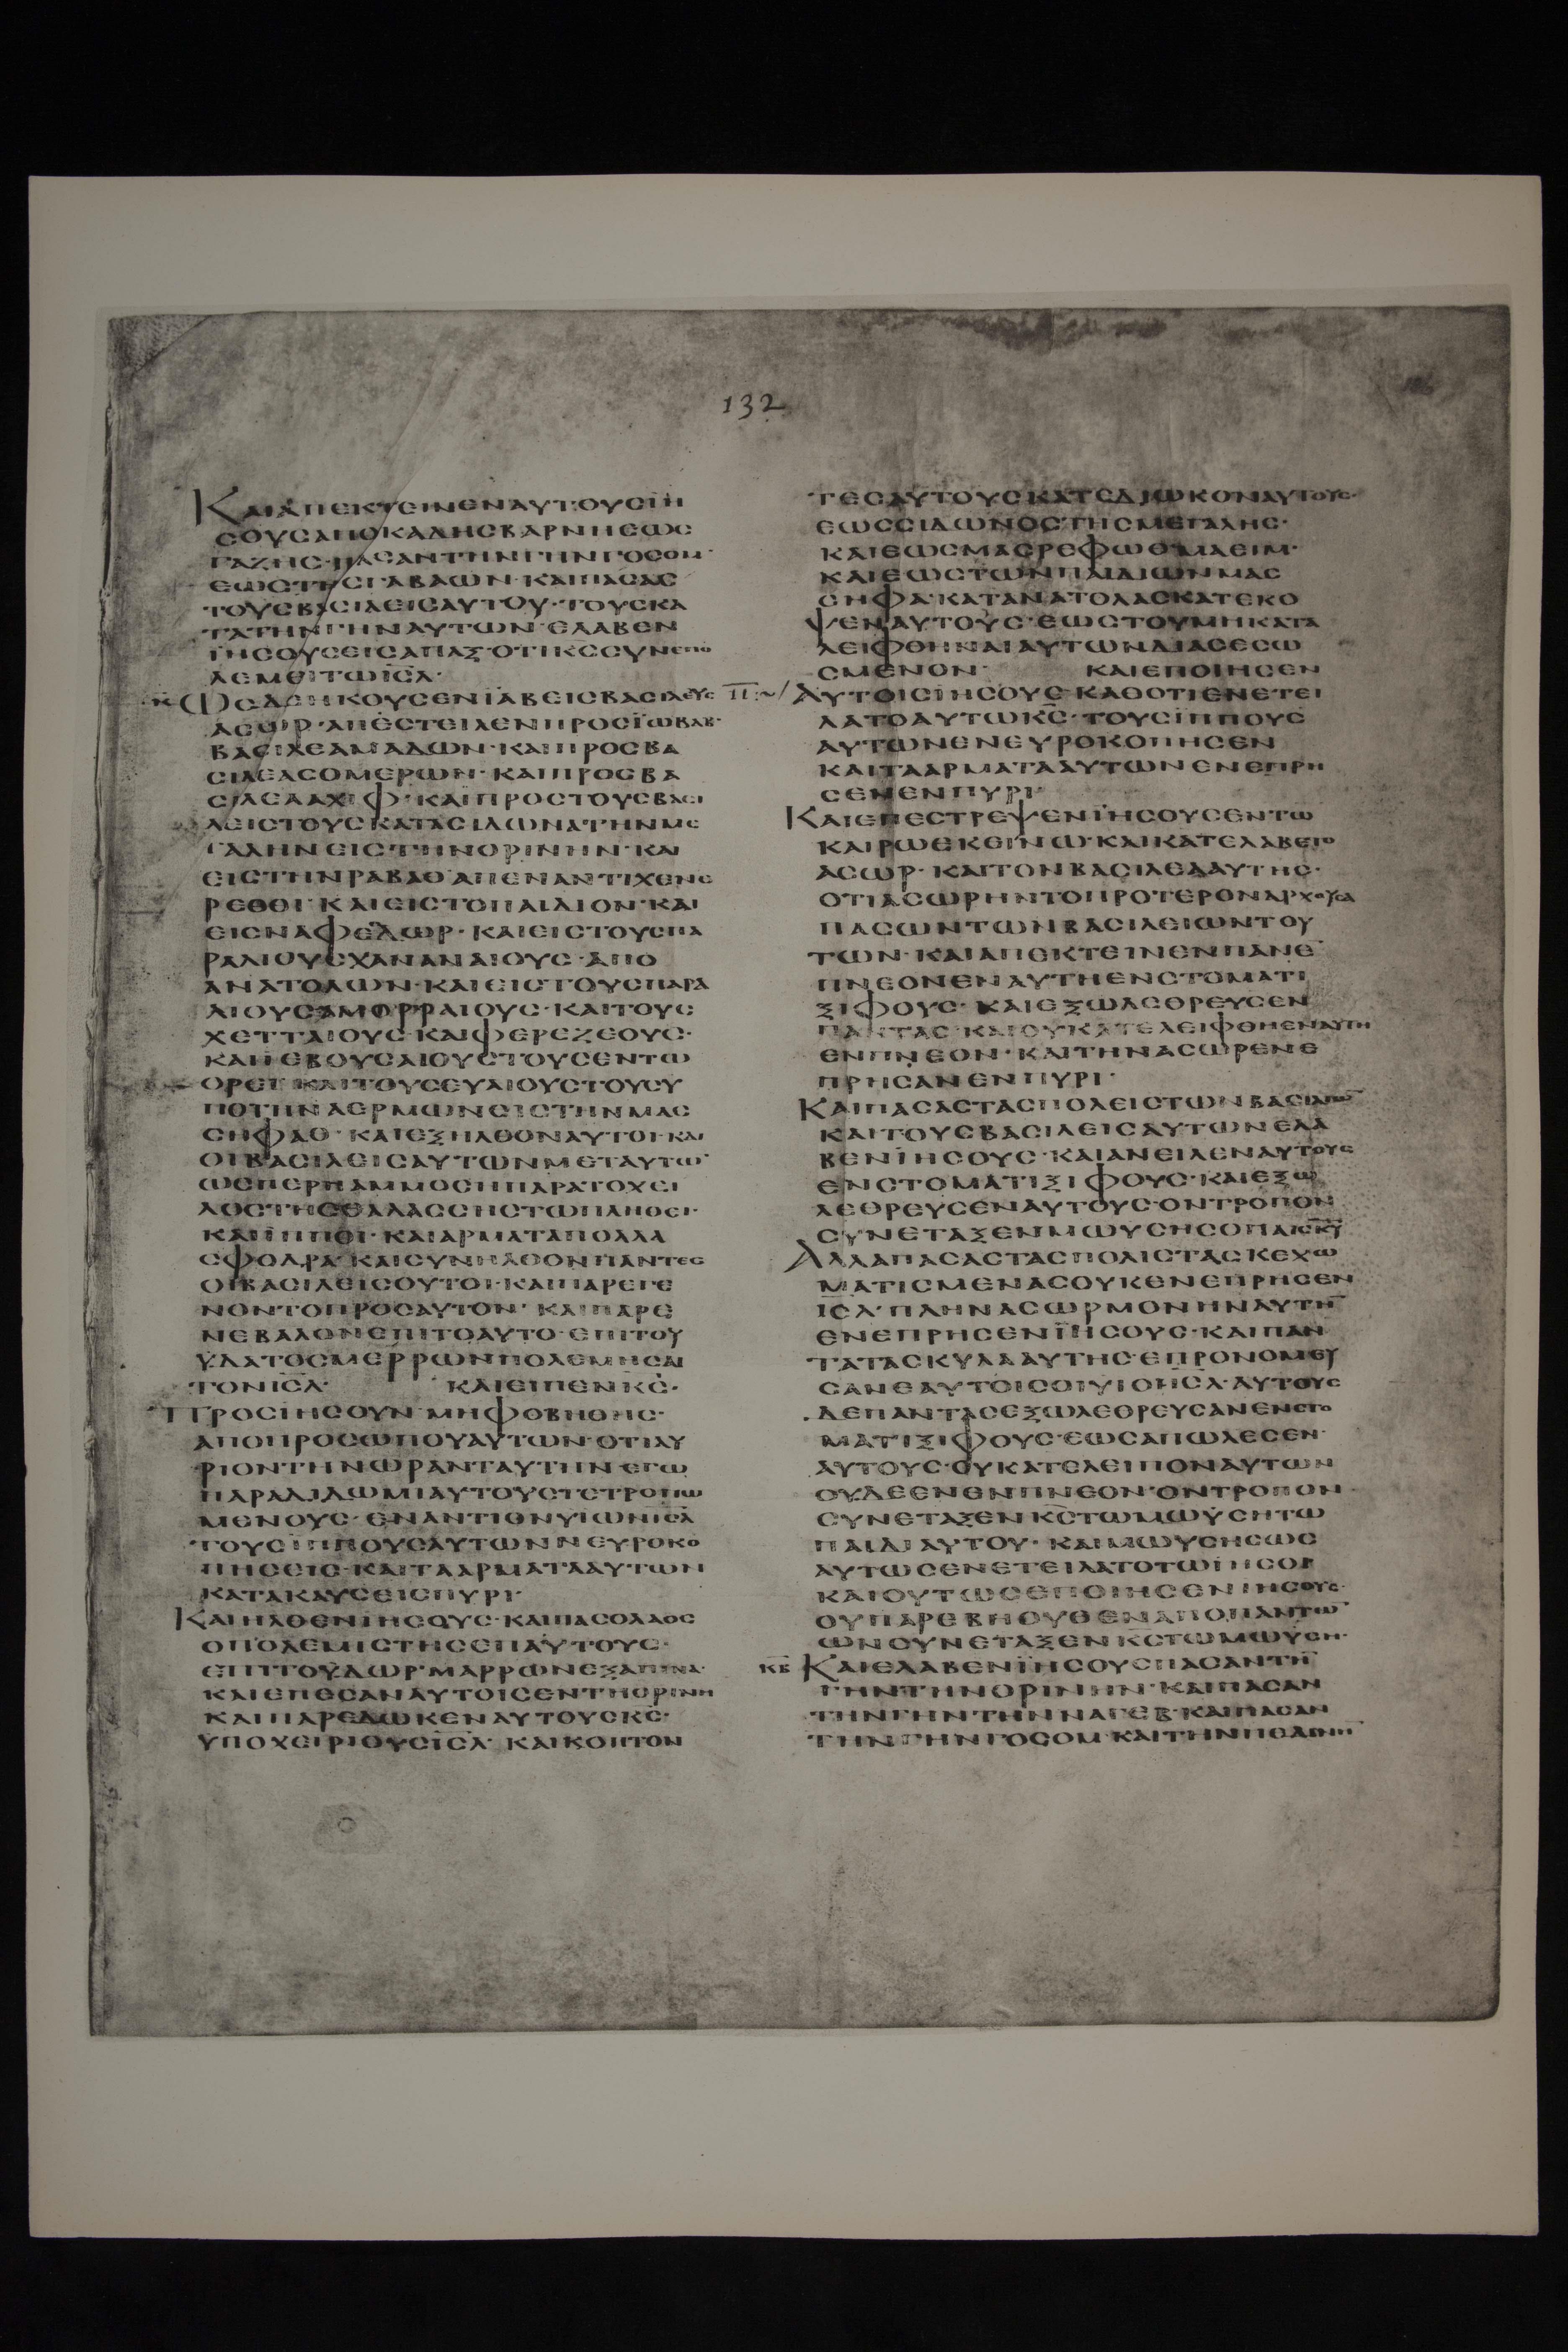 132
ΚΑΙΑΠΕΚΤΕΙΝΕΝΑΥΤΟΥΣΙΗ
ΣΟΥΣΑΠΟΚΑΔΗΣΒΑΡΝΗΕΩΣ
ΓΑΖΗΣ·ΠΑΣΑΝΤΗΝΓΗΝΓΟΣΟΜ·
ΕΩΣΤΗΣΓΑΒΑΩΝ·ΚΑΙΠΑΣΑΣ
ΤΟΥΣΒΑΣΙΛΕΙΣΑΥΤΟΥ·ΤΟΥΣΚΑ
ΤΑΤΗΝΓΗΝΑΥΤΩΝ·ΕΛΑΒΕΝ
ΙΗΣΟΥΣΕΙΣΑΠΑΞ·ΟΤΙΚΣΣΥΝΕΠΟ
ΛΕΜΕΙΤΩΙΣΛ·
Κ ΩΣΔΕΗΚΟΥΣΕΝΙΑΒΕΙΣΒΑΣΙΛΕΥΣ
ΑΣΩΡ·ΑΠΕΣΤΕΙΛΕΝΠΡΟΣΪΩΒΑΒ·
ΒΑΣΙΛΕΑΜΑΔΩΝ·ΚΑΙΠΡΟΣΒΑ
ΣΙΛΕΑΣΟΜΕΡΩΝ·ΚΑΙΠΡΟΣΒΑ
ΣΙΛΕΑΑΧΙΦ·ΚΑΙΠΡΟΣΤΟΥΣΒΑΣΙ
ΛΕΙΣΤΟΥΣΚΑΤΑΣΙΔΩΝΑΤΗΝΜΕ
ΓΑΛΗΝΕΙΣΤΗΝΟΡΙΝΗΝ·ΚΑΙ
ΕΙΣΤΗΝΡΑΒΑΘΑΠΕΝΑΝΤΙΧΕΝΕ
ΡΕΘΘΙ·ΚΑΙΕΙΣΤΟΠΑΙΔΙΟΝ·ΚΑΙ
ΕΙΣΝΑΦΕΔΔΩΡ·ΚΑΙΕΙΣΤΟΥΣΠΑ
ΡΑΛΙΟΥΣΧΑΝΑΝΑΙΟΥΣ·ΑΠΟ
ΑΝΑΤΟΛΩΝ·ΚΑΙΕΙΣΤΟΥΣΠΑΡΑ
ΛΙΟΥΣΑΜΟΡΡΑΙΟΥΣ·ΚΑΙΤΟΥΣ
ΧΕΤΤΑΙΟΥΣ·ΚΑΙΦΕΡΕΖΕΟΥΣ·
ΚΑΙΙΕΒΟΥΣΑΙΟΥΣΤΟΥΣΕΝΤΩ
ΟΡΕΙ·ΚΑΙΤΟΥΣΕΥΑΙΟΥΣΤΟΥΣΥ
ΠΟΤΗΝΑΕΡΜΩΝΕΙΣΤΗΝΜΑΣ
ΣΗΦΑΘ·ΚΑΙΕΞΗΛΘΟΝΑΥΤΟΙ·ΚΑΙ
ΟΙΒΑΣΙΛΕΙΣΑΥΤΩΝΜΕΤΑΥΤΩ¯
ΩΣΠΕΡΗΑΜΜΟΣΗΠΑΡΑΤΟΧΕΙ
ΛΟΣΤΗΣΘΑΛΑΣΣΗΣΤΩΠΛΗΘΕΙ·
ΚΑΙΙΠΠΟΙ·ΚΑΙΑΡΜΑΤΑΠΟΛΛΑ
ΣΦΟΔΡΑ·ΚΑΙΣΥΝΗΛΘΟΝΠΑΝΤΕΣ
ΟΙΒΑΣΙΛΕΙΣΟΥΤΟΙ·ΚΑΙΠΑΡΕΓΕ
ΝΟΝΤΟΠΡΟΣΑΥΤΟΝ·ΚΑΙΠΑΡΕ
ΝΕΒΑΛΟΝΕΠΙΤΟΑΥΤΟ·ΕΠΙΤΟΥ
ΥΔΑΤΟΣΜΕΡΡΩΝΠΟΛΕΜΗΣΑΙ
ΤΟΝΙΣΛ· ΚΑΙΕΙΠΕΝΚΣ·
ΠΡΟΣΙΗΣΟΥΝ·ΜΗΦΟΒΗΘΗΣ·
ΑΠΟΠΡΟΣΩΠΟΥΑΥΤΩΝ·ΟΤΙΑΥ
ΡΙΟΝΤΗΝΩΡΑΝΤΑΥΤΗΝ·ΕΓΩ
ΠΑΡΑΔΙΔΩΜΙΑΥΤΟΥΣΤΕΤΡΟΠΩ
ΜΕΝΟΥΣ·ΕΝΑΝΤΙΟΝΥΙΩΝΙΣΛ
ΤΟΥΣΙΠΠΟΥΣΑΥΤΩΝΝΕΥΡΟΚΟ
ΠΗΣΕΙΣ·ΚΑΙΤΑΑΡΜΑΤΑΑΥΤΩΝ
ΚΑΤΑΚΑΥΣΕΙΣΠΥΡΙ·
ΚΑΙΗΛΘΕΝΙΗΣΟΥΣ·ΚΑΙΠΑΣΟΛΑΟΣ
ΟΠΟΛΕΜΙΣΤΗΣΕΠΑΥΤΟΥΣ·
ΕΠΙΤΟΥΔΩΡ·ΜΑΡΡΩΝΕΞΑΠΙΝΑ·
ΚΑΙΕΠΕΣΑΝΑΥΤΟΙΣΕΝΤΗΟΡΙΝΗ
ΚΑΙΠΑΡΕΔΩΚΕΝΑΥΤΟΥΣΚΣ·
ΥΠΟΧΕΙΡΙΟΥΣΙΣΛ·ΚΑΙΚΟΠΤΟΝ
ΤΕΣΑΥΤΟΥΣΚΑΤΕΔΙΩΚΟΝΑΥΤΟΥΣ·
ΕΩΣΣΙΔΩΝΟΣΤΗΣΜΕΓΑΛΗΣ·
ΚΑΙΕΩΣΜΑΣΡΕΦΩΘΜΑΕΙΜ·
ΚΑΙΕΩΣΤΩΝΠΑΙΔΙΩΝΜΑΣ
ΣΗΦΑ·ΚΑΤΑΝΑΤΟΛΑΣΚΑΤΕΚΟ
ΨΕΝΑΥΤΟΥΣ·ΕΩΣΤΟΥΜΗΚΑΤΑ
ΛΕΙΦΘΗΝΑΙΑΥΤΩΝΔΙΑΣΕΣΩ
ΣΜΕΝΟΝ· ΚΑΙΕΠΟΙΗΣΕΝ
ΑΥΤΟΙΣΙΗΣΟΥΣ·ΚΑΘΟΤΙΕΝΕΤΕΙ
ΛΑΤΟΑΥΤΩΚΣ·ΤΟΥΣΙΠΠΟΥΣ
ΑΥΤΩΝΕΝΕΥΡΟΚΟΠΗΣΕΝ
ΚΑΙΤΑΑΡΜΑΤΑΑΥΤΩΝΕΝΕΠΡΗ
ΣΕΝΕΝΠΥΡΙ·
ΚΑΙΕΠΕΣΤΡΕΨΕΝΙΗΣΟΥΣΕΝΤΩ
ΚΑΙΡΩΕΚΕΙΝΩ·ΚΑΙΚΑΤΕΛΑΒΕΤΟ
ΑΣΩΡ·ΚΑΙΤΟΝΒΑΣΙΛΕΑΑΥΤΗΣ·
ΟΤΙΑΣΩΡΗΝΤΟΠΡΟΤΕΡΟΝΑΡΧΟΥΣΑ
ΠΑΣΩΝΤΩΝΒΑΣΙΛΕΙΩΝΤΟΥ
ΤΩΝ·ΚΑΙΑΠΕΚΤΕΙΝΕΝΠΑΝΕ¯
ΠΝΕΟΝΕΝΑΥΤΗΕΝΣΤΟΜΑΤΙ
ΞΙΦΟΥΣ·ΚΑΙΕΞΩΛΕΘΡΕΥΣΕΝ
ΠΑΝΤΑΣ·ΚΑΙΟΥΚΑΤΕΛΕΙΦΘΗΕΝΑΥΤΗ
ΕΝΠΝΕΟΝ·ΚΑΙΤΗΝΑΣΩΡΕΝΕ
ΠΡΗΣΑΝΕΝΠΥΡΙ·
ΚΑΙΠΑΣΑΣΤΑΣΠΟΛΕΙΣΤΩΝΒΑΣΙΛΕΙΩ¯
ΚΑΙΤΟΥΣΒΑΣΙΛΕΙΣΑΥΤΩΝΕΛΑ
ΒΕΝΙΗΣΟΥΣ·ΚΑΙΑΝΕΙΛΕΝΑΥΤΟΥΣ
ΕΝΣΤΟΜΑΤΙΞΙΦΟΥΣ·ΚΑΙΕΞΩ
ΛΕΘΡΕΥΣΕΝΑΥΤΟΥΣ·ΟΝΤΡΟΠΟΝ
ΣΥΝΕΤΑΞΕΝΜΩΥΣΗΣΟΠΑΙΣΚΥ
ΑΛΛΑΠΑΣΑΣΤΑΣΠΟΛΙΣΤΑΣΚΕΧΩ
ΜΑΤΙΣΜΕΝΑΣΟΥΚΕΝΕΠΡΗΣΕΝ
ΙΣΛ·ΠΛΗΝΑΣΩΡΜΟΝΗΝΑΥΤΗ¯
ΕΝΕΠΡΗΣΕΝΙΗΣΟΥΣ·ΚΑΙΠΑΝ
ΤΑΤΑΣΚΥΛΑΑΥΤΗΣ·ΕΠΡΟΝΟΜΕΥ
ΣΑΝΕΑΥΤΟΙΣΟΙΥΙΟΙΙΣΛ·ΑΥΤΟΥΣ
ΔΕΠΑΝΤΑΣΕΞΩΛΕΘΡΕΥΣΑΝΕΝΣΤΟ
ΜΑΤΙΞΙΦΟΥΣ·ΕΩΣΑΠΩΛΕΣΕΝ·
ΑΥΤΟΥΣ·ΟΥΚΑΤΕΛΕΙΠΟΝΑΥΤΩΝ
ΟΥΔΕΕΝΕΝΠΝΕΟΝ·ΟΝΤΡΟΠΟΝ
ΣΥΝΕΤΑΞΕΝΚΣΤΩΜΩΥΣΗΤΩ
ΠΑΙΔΙΑΥΤΟΥ·ΚΑΙΜΩΥΣΗΣΩΣ
ΑΥΤΩΣΕΝΕΤΕΙΛΑΤΟΤΩΙΗΣΟΙ
ΚΑΙΟΥΤΩΣΕΠΟΙΗΣΕΝΙΗΣΟΥΣ·
ΟΥΠΑΡΕΒΗΟΥΘΕΝΑΠΟΠΑΝΤΩ¯
ΩΝΟΥΝΕΤΑΞΕΝΚΣΤΩΜΩΥΣΗ·
ΚΒ ΚΑΙΕΛΑΒΕΝΙΗΣΟΥΣΠΑΣΑΝΤΗ¯
ΓΗΝΤΗΝΟΡΙΝΗΝ·ΚΑΙΠΑΣΑΝ
ΤΗΝΓΗΝΤΗΝΝΑΓΕΒ·ΚΑΙΠΑΣΑΝ
ΤΗΝΓΗΝΓΟΣΟΜ·ΚΑΙΤΗΝΠΕΔΙΝΗ¯